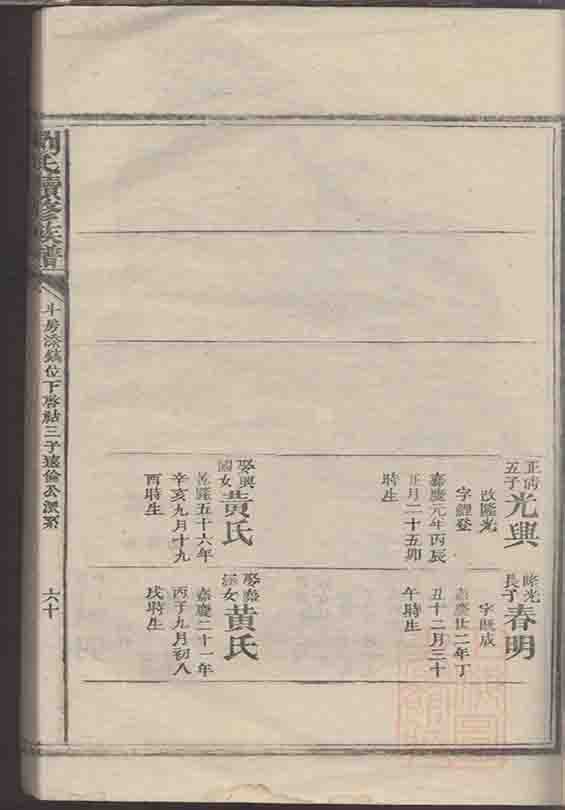 正清五子光與
改隆光
字經登
嘉慶元年丙辰
正月二十五卯
時生
娶興國女黃氏
乾隆五十六年
辛亥九月十九
酉時生
隆光長子春明
字既成
嘉慶廿二年丁
丑十二月三十
午時生
娶 女黃氏
嘉慶二十一年
丙子九月初八
戌時生
劉氏續修族譜
斗房 位下啓 三子 倫公派系
六十